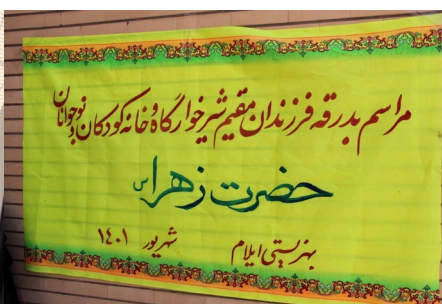 مراسم بدرقه فرزندان مقیم شیرخوارگاه و خانه کودکان و نوجوانان
حضرت زهرا (س)
بهزیستی ایلام شهریور ۱۴۰۱